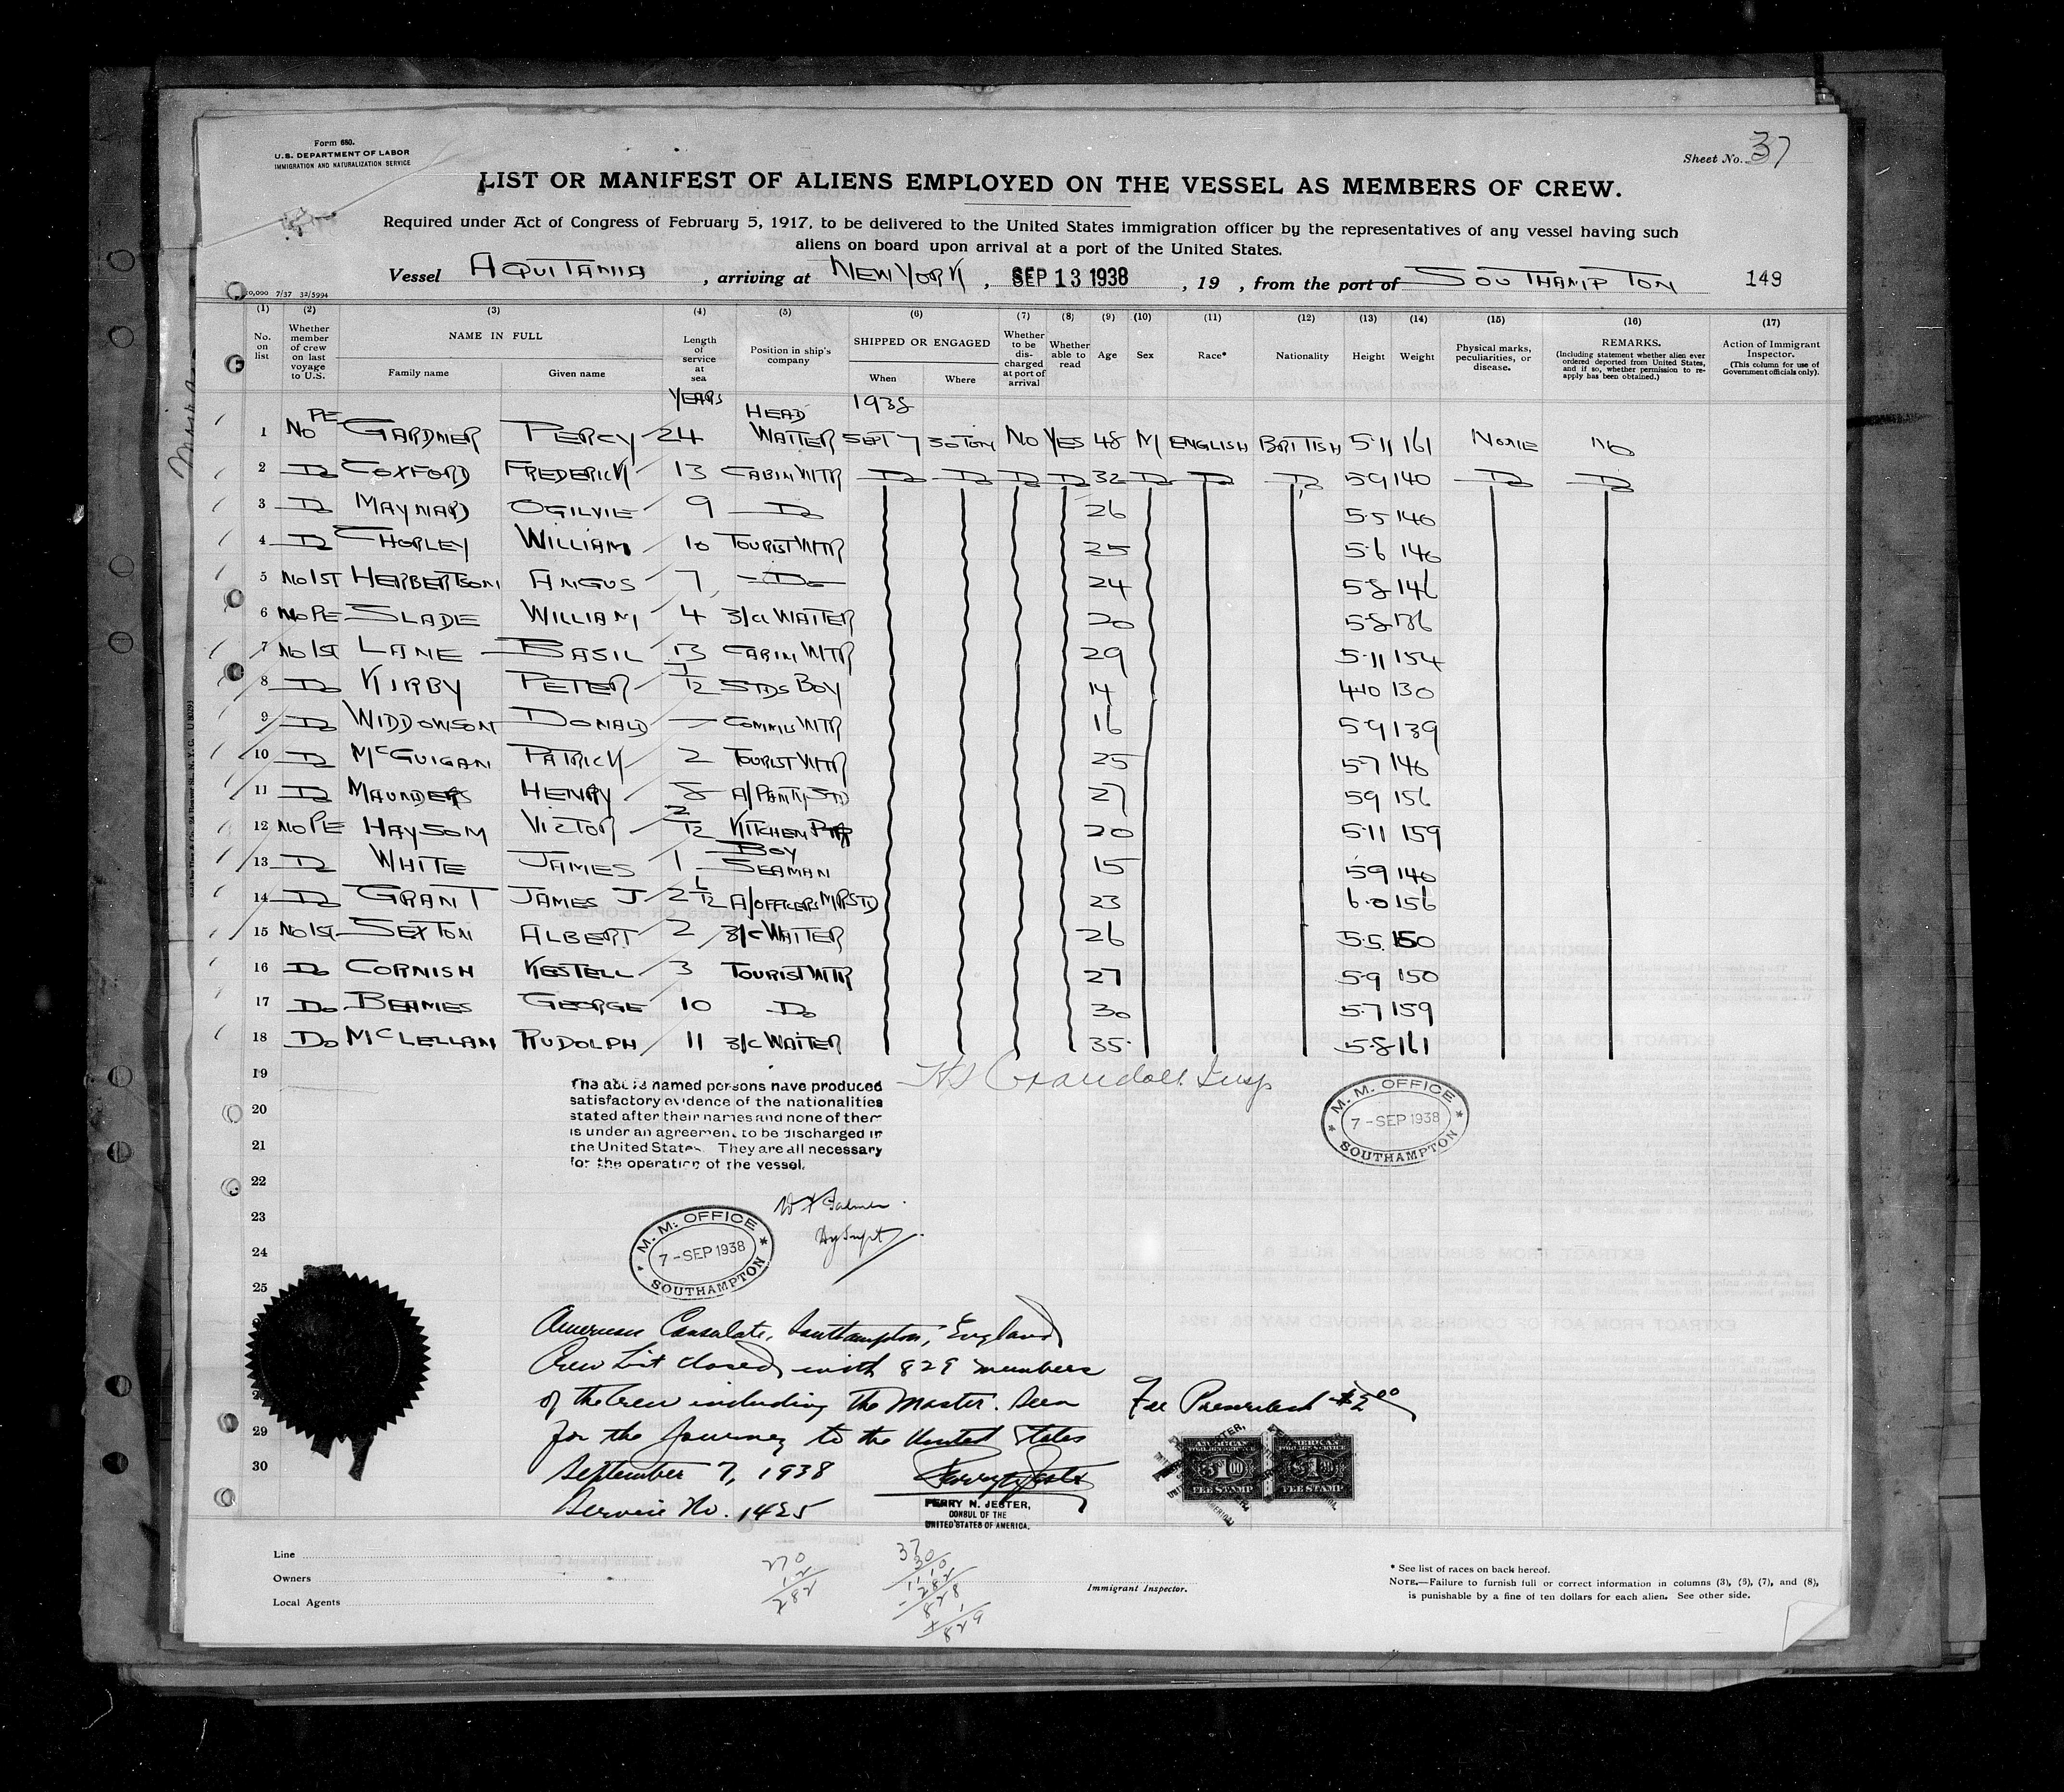 Form 680.
U.S. DEPARTMENT OF LABOR
IMMIGRATION AND NATURALIZATION SERVICE
Sheet No. 37
LIST OR MANIFEST OF ALIENS EMPLOYED ON THE VESSEL AS MEMBERS OF CREW.
Required under Act of Congress of February 5, 1917, to be delivered to the United States immigration officer by the representatives of any vessel having such
aliens on board upon arrival at a port of the United States.
Vessel AQUITANIA, arriving at NEW YORK, SEP 13 1938, 19 , from the port of SOUTHAMPTON 149
(1) (2) (3) (4) (5) (6) (7) (8) (9) (10) (11) (12) (13) (14) (15) (16) (17)
No. on list
Whether member of crew on last voyage to U.S.
NAME IN FULL
Family name Given name
Length of service at sea
Position in ship's company
SHIPPED OR ENGAGED
When Where
Whether to be discharged at port of arrival
Whether able to read
Age Sex Race* Nationality Height Weight
Physical marks, peculiarities, or disease.
REMARKS.
(Including statement whether alien ever ordered deported from United States, and if so, whether permission to reapply has been obtained.)
Action of Immigrant Inspector.
(This column for use of Government officials only).
YEARS 1938
1 NO PE GARDNER PERCY 24 HEAD WAITER SEPT 7 SOTON NO YES 48 M ENGLISH BRITISH 5.11 161 NONE NO
2 Do COXFORD FREDERICK 13 CABIN WTR Do Do Do Do 32 Do Do Do 5 9 140 Do Do
3 Do MAYNARD OGILVIE 9 Do 26 5.5 140
4 Do CHORLEY WILLIAM 10 TOURIST WTR 25 5.6 140
5 NO 1ST HERBERTSON ANGUS 7 Do 24 5.8 146
6 NO PE SLADE WILLIAM 4 3/CL WAITER 20 5.8 136
7 NO 1ST LANE BASIL 13 CABIN WTR 29 5.11 154
8 Do KIRBY PETER 1/12 STDS BOY 14 4.10 130
9 Do WIDDOWSON DONALD — COMMIS WTR 16 5.9 139
10 Do McGUIGAN PATRICK 2 TOURIST WTR 25 5.7 140
11 Do MAUNDERS HENRY 8 A/PANTRY STD 27 5 9 156
12 NO PE HAYSOM VICTOR 2/12 KITCHEN PTR 20 5.11 159
13 Do WHITE JAMES 1 BOY SEAMAN 15 5 9 140
14 Do GRANT JAMES J 2 1/12 A/OFFICERS MR STD 23 6.0 156
15 NO 1ST SEXTON ALBERT 2 3/C WAITER 26 5.5 150
16 Do CORNISH KESTELL 3 TOURIST WTR 27 5.9 150
17 Do BEAMES GEORGE 10 Do 30 5.7 159
18 Do McLELLAN RUDOLPH 11 3/C WAITER 35 5.8 161
19
Crandall Insp
The above named persons have produced
satisfactory evidence of the nationalities
stated after their names and none of them
is under an agreement to be discharged in
the United States. They are all necessary
for the operation of the vessel.
M. M. OFFICE
7-SEP 1938
SOUTHAMPTON
20
21
22
23
24
25
M. M. OFFICE
7-SEP 1938
SOUTHAMPTON
American Consulate, Southampton, England
Crew List closed with 829 members
of the Crew including the Master. Seen
for the journey to the United States
September 7, 1938
Service No. 1425
Fee Prescribed $2.00
29
30
PERRY N. JESTER,
CONSUL OF THE
UNITED STATES OF AMERICA.
AMERICAN FOREIGN SERVICE $1.00 FEE STAMP
AMERICAN FOREIGN SERVICE $1.00 FEE STAMP
Line
Owners
Local Agents
270
12
282
37
30
1110
282
828
1
829
Immigrant Inspector.
* See list of races on back hereof.
NOTE.—Failure to furnish full or correct information in columns (3), (5), (7), and (8),
is punishable by a fine of ten dollars for each alien. See other side.